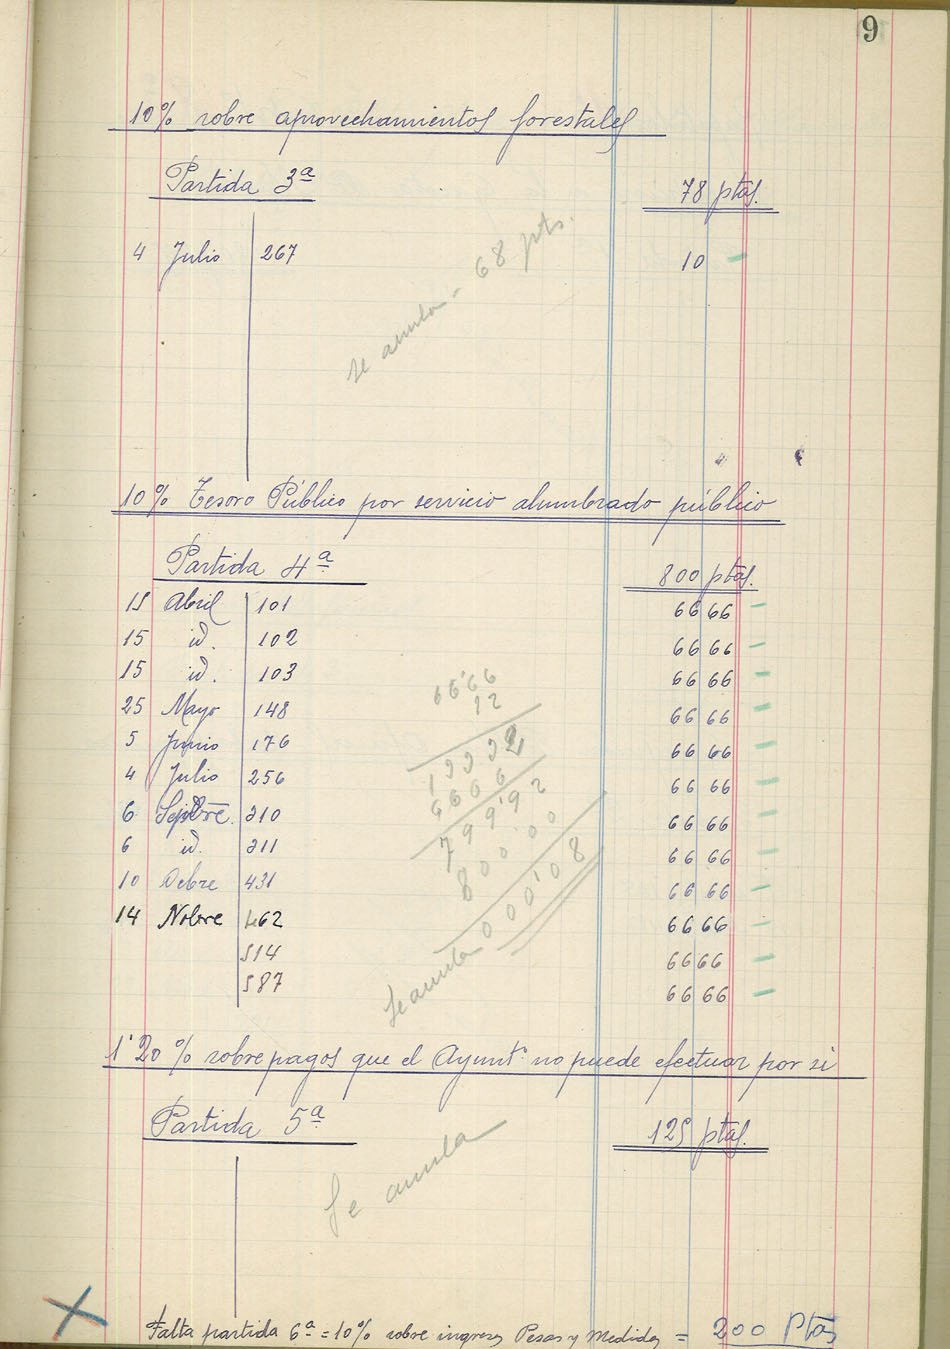 9
10% sobre aprovechamientos forestales
Partida 3ª
78 ptas.
4 Julio 267 10 -
Se anula - 68 pts.
10% Tesoro Público por servicio alumbrado público
Partida 4ª
800 ptas.
15 Abril 101 66 66 -
15 id. 102 66 66 -
15 id. 103 66 66 -
25 Mayo 148 66 66 -
5 Junio 176 66 66 -
4 Julio 256 66 66 -
6 Sepbre. 310 66 66 -
6 id. 311 66 66 -
10 Ocbre 431 66 66 -
14 Nobre 462 66 66 -
514 66 66 -
587 66 66 -
66'66
12
13332
6666
799'92
800'00
Se anula 000'08
1'20% sobre pagos que el Ayunt.º no puede efectuar por si
Partida 5ª
125 ptas.
Se anula
Falta partida 6ª = 10% sobre ingresos Pesas y Medidas = 200 Ptas